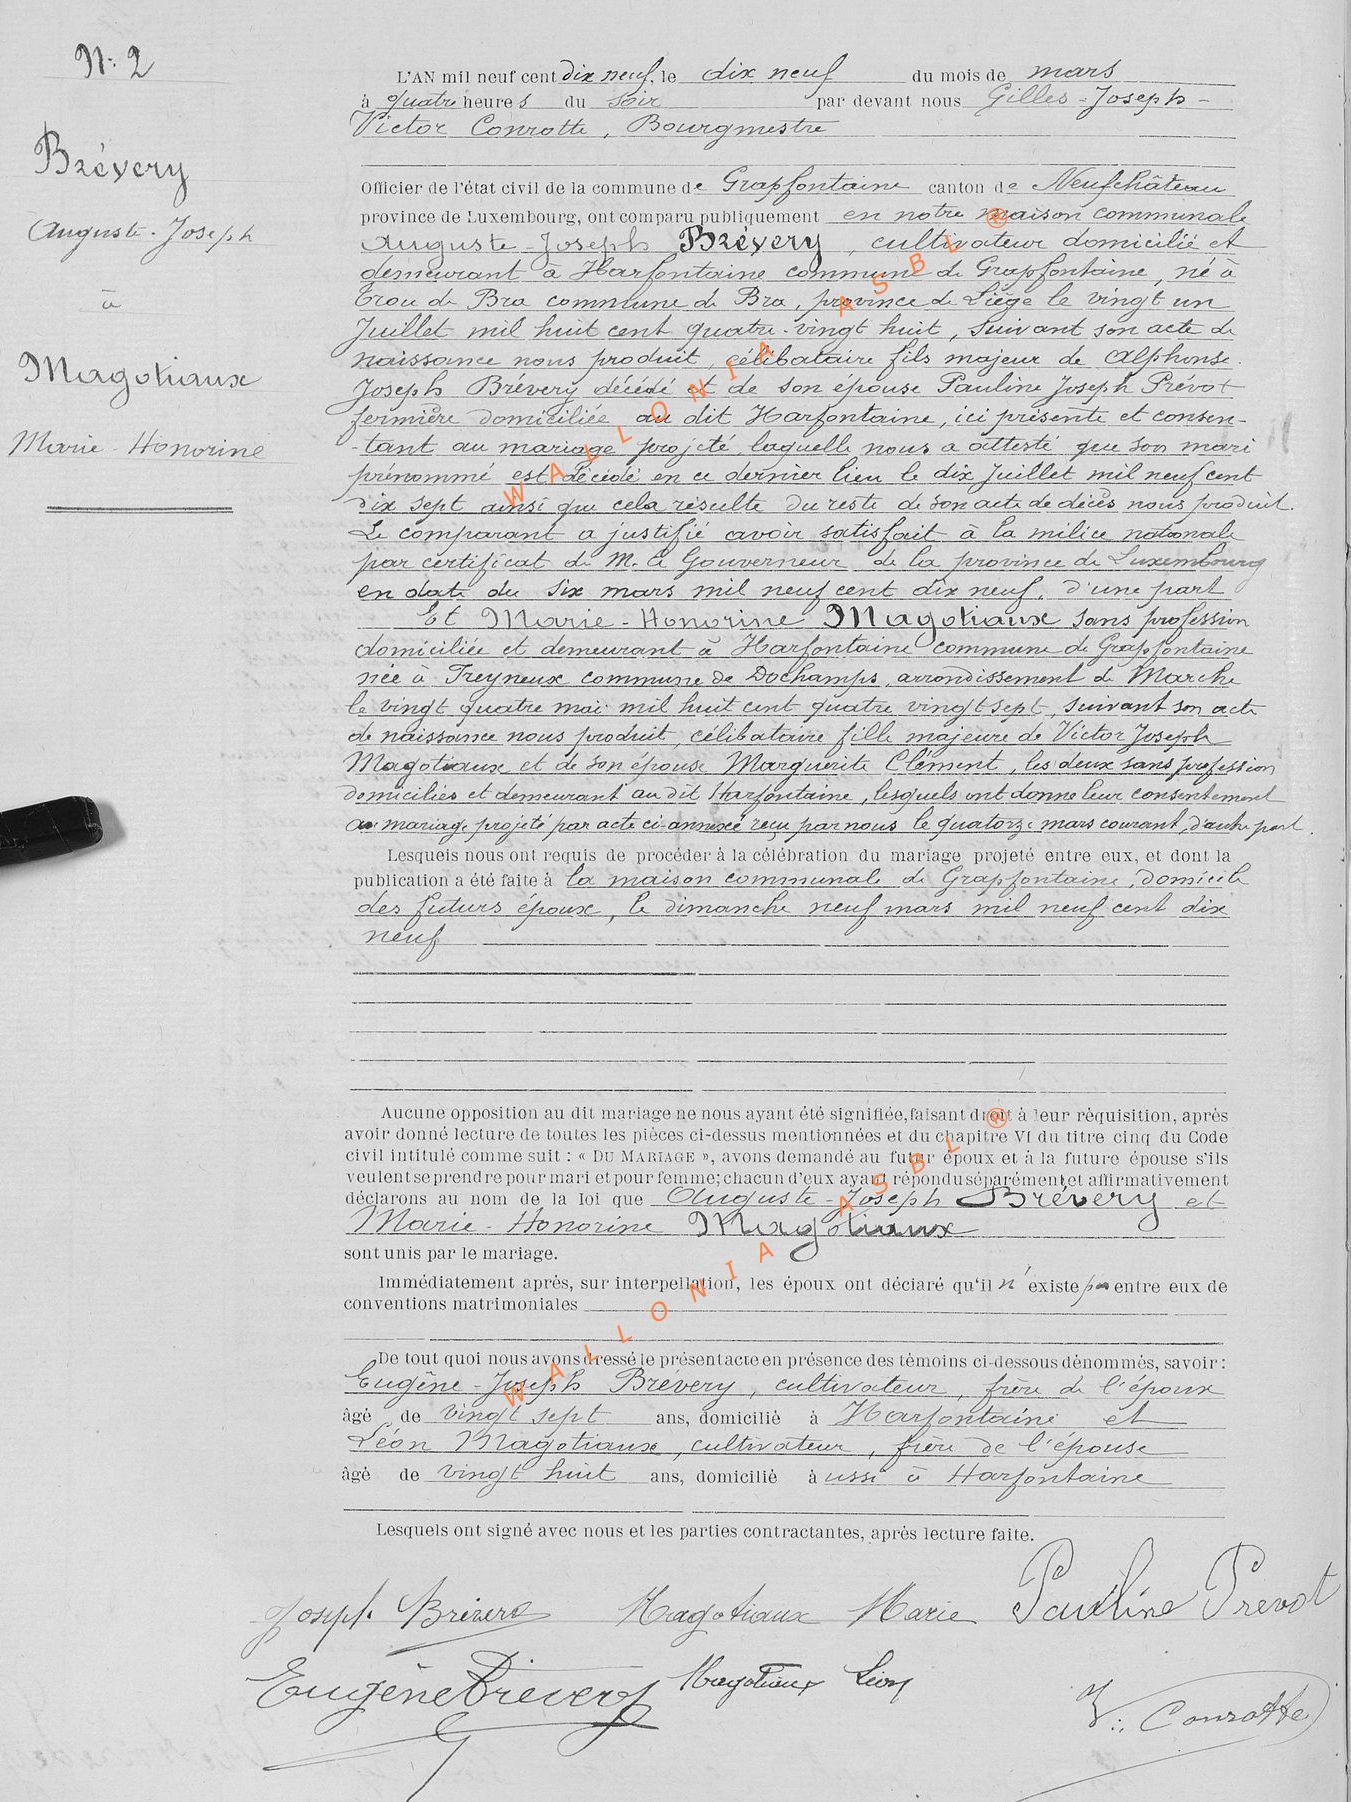 N: 2
Brévery
Auguste-Joseph
à
Magotiaux
Marie-Honorine
L'AN mil neuf cent dix neuf, le dix neuf du mois de mars
à quatre heures du soir par devant nous Gilles-Joseph-
Victor Conrotte, Bourgmestre
Officier de l'état civil de la commune de Grapfontaine canton de Neufchâteau
province de Luxembourg, ont comparu publiquement en notre maison communale
Auguste-Joseph Brévery, cultivateur domicilié et
demeurant à Harfontaine commune de Grapfontaine, né à
Trou de Bra commune de Bra, province de Liège le vingt un
Juillet mil huit cent quatre-vingt huit, suivant son acte de
naissance nous produit, célibataire fils majeur de Alphonse
Joseph Brévery décédé et de son épouse Pauline Joseph Prévot
fermière domiciliée au dit Harfontaine, ici présente et consen-
-tant au mariage projeté, laquelle nous a attesté que son mari
prénommé est décédé en ce dernier lieu le dix Juillet mil neuf cent
dix sept ainsi que cela résulte du reste de son acte de décès nous produit.
Le comparant a justifié avoir satisfait à la milice nationale
par certificat de M. le Gouverneur de la province de Luxembourg
en date du six mars mil neuf cent dix neuf, d'une part
Et Marie-Honorine Magotiaux sans profession
domiciliée et demeurant à Harfontaine commune de Grapfontaine
née à Freyneux commune de Dochamps, arrondissement de Marche
le vingt quatre mai mil huit cent quatre vingt sept, suivant son acte
de naissance nous produit, célibataire fille majeure de Victor Joseph
Magotiaux et de son épouse Marguerite Clément, les deux sans profession
domiciliés et demeurant au dit Harfontaine, lesquels ont donné leur consentement
au mariage projeté par acte ci-annexé reçu par nous le quatorze mars courant, d'autre part.
Lesquels nous ont requis de procéder à la célébration du mariage projeté entre eux, et dont la
publication a été faite à la maison communale de Grapfontaine, domicile
des futurs époux, le dimanche neuf mars mil neuf cent dix
neuf
Aucune opposition au dit mariage ne nous ayant été signifiée, faisant droit à leur réquisition, après
avoir donné lecture de toutes les pièces ci-dessus mentionnées et du chapitre VI du titre cinq du Code
civil intitulé comme suit : « DU MARIAGE », avons demandé au futur époux et à la future épouse s'ils
veulent se prendre pour mari et pour femme; chacun d'eux ayant répondu séparément et affirmativement
déclarons au nom de la loi que Auguste-Joseph Brévery et
Marie-Honorine Magotiaux
sont unis par le mariage.
Immédiatement après, sur interpellation, les époux ont déclaré qu'il n'existe pas entre eux de
conventions matrimoniales
De tout quoi nous avons dressé le présent acte en présence des témoins ci-dessous dénommés, savoir :
Eugène-Joseph Brévery, cultivateur, frère de l'époux
âgé de vingt sept ans, domicilié à Harfontaine et
Léon Magotiaux, cultivateur, frère de l'épouse
âgé de vingt huit ans, domicilié aussi à Harfontaine
Lesquels ont signé avec nous et les parties contractantes, après lecture faite.
Joseph Brévery Magotiaux Marie Pauline Prévot
Eugène Brevery Magotiaux Léon
V: Conrotte
WALLONIA ASBL ®
WALLONIA ASBL ®